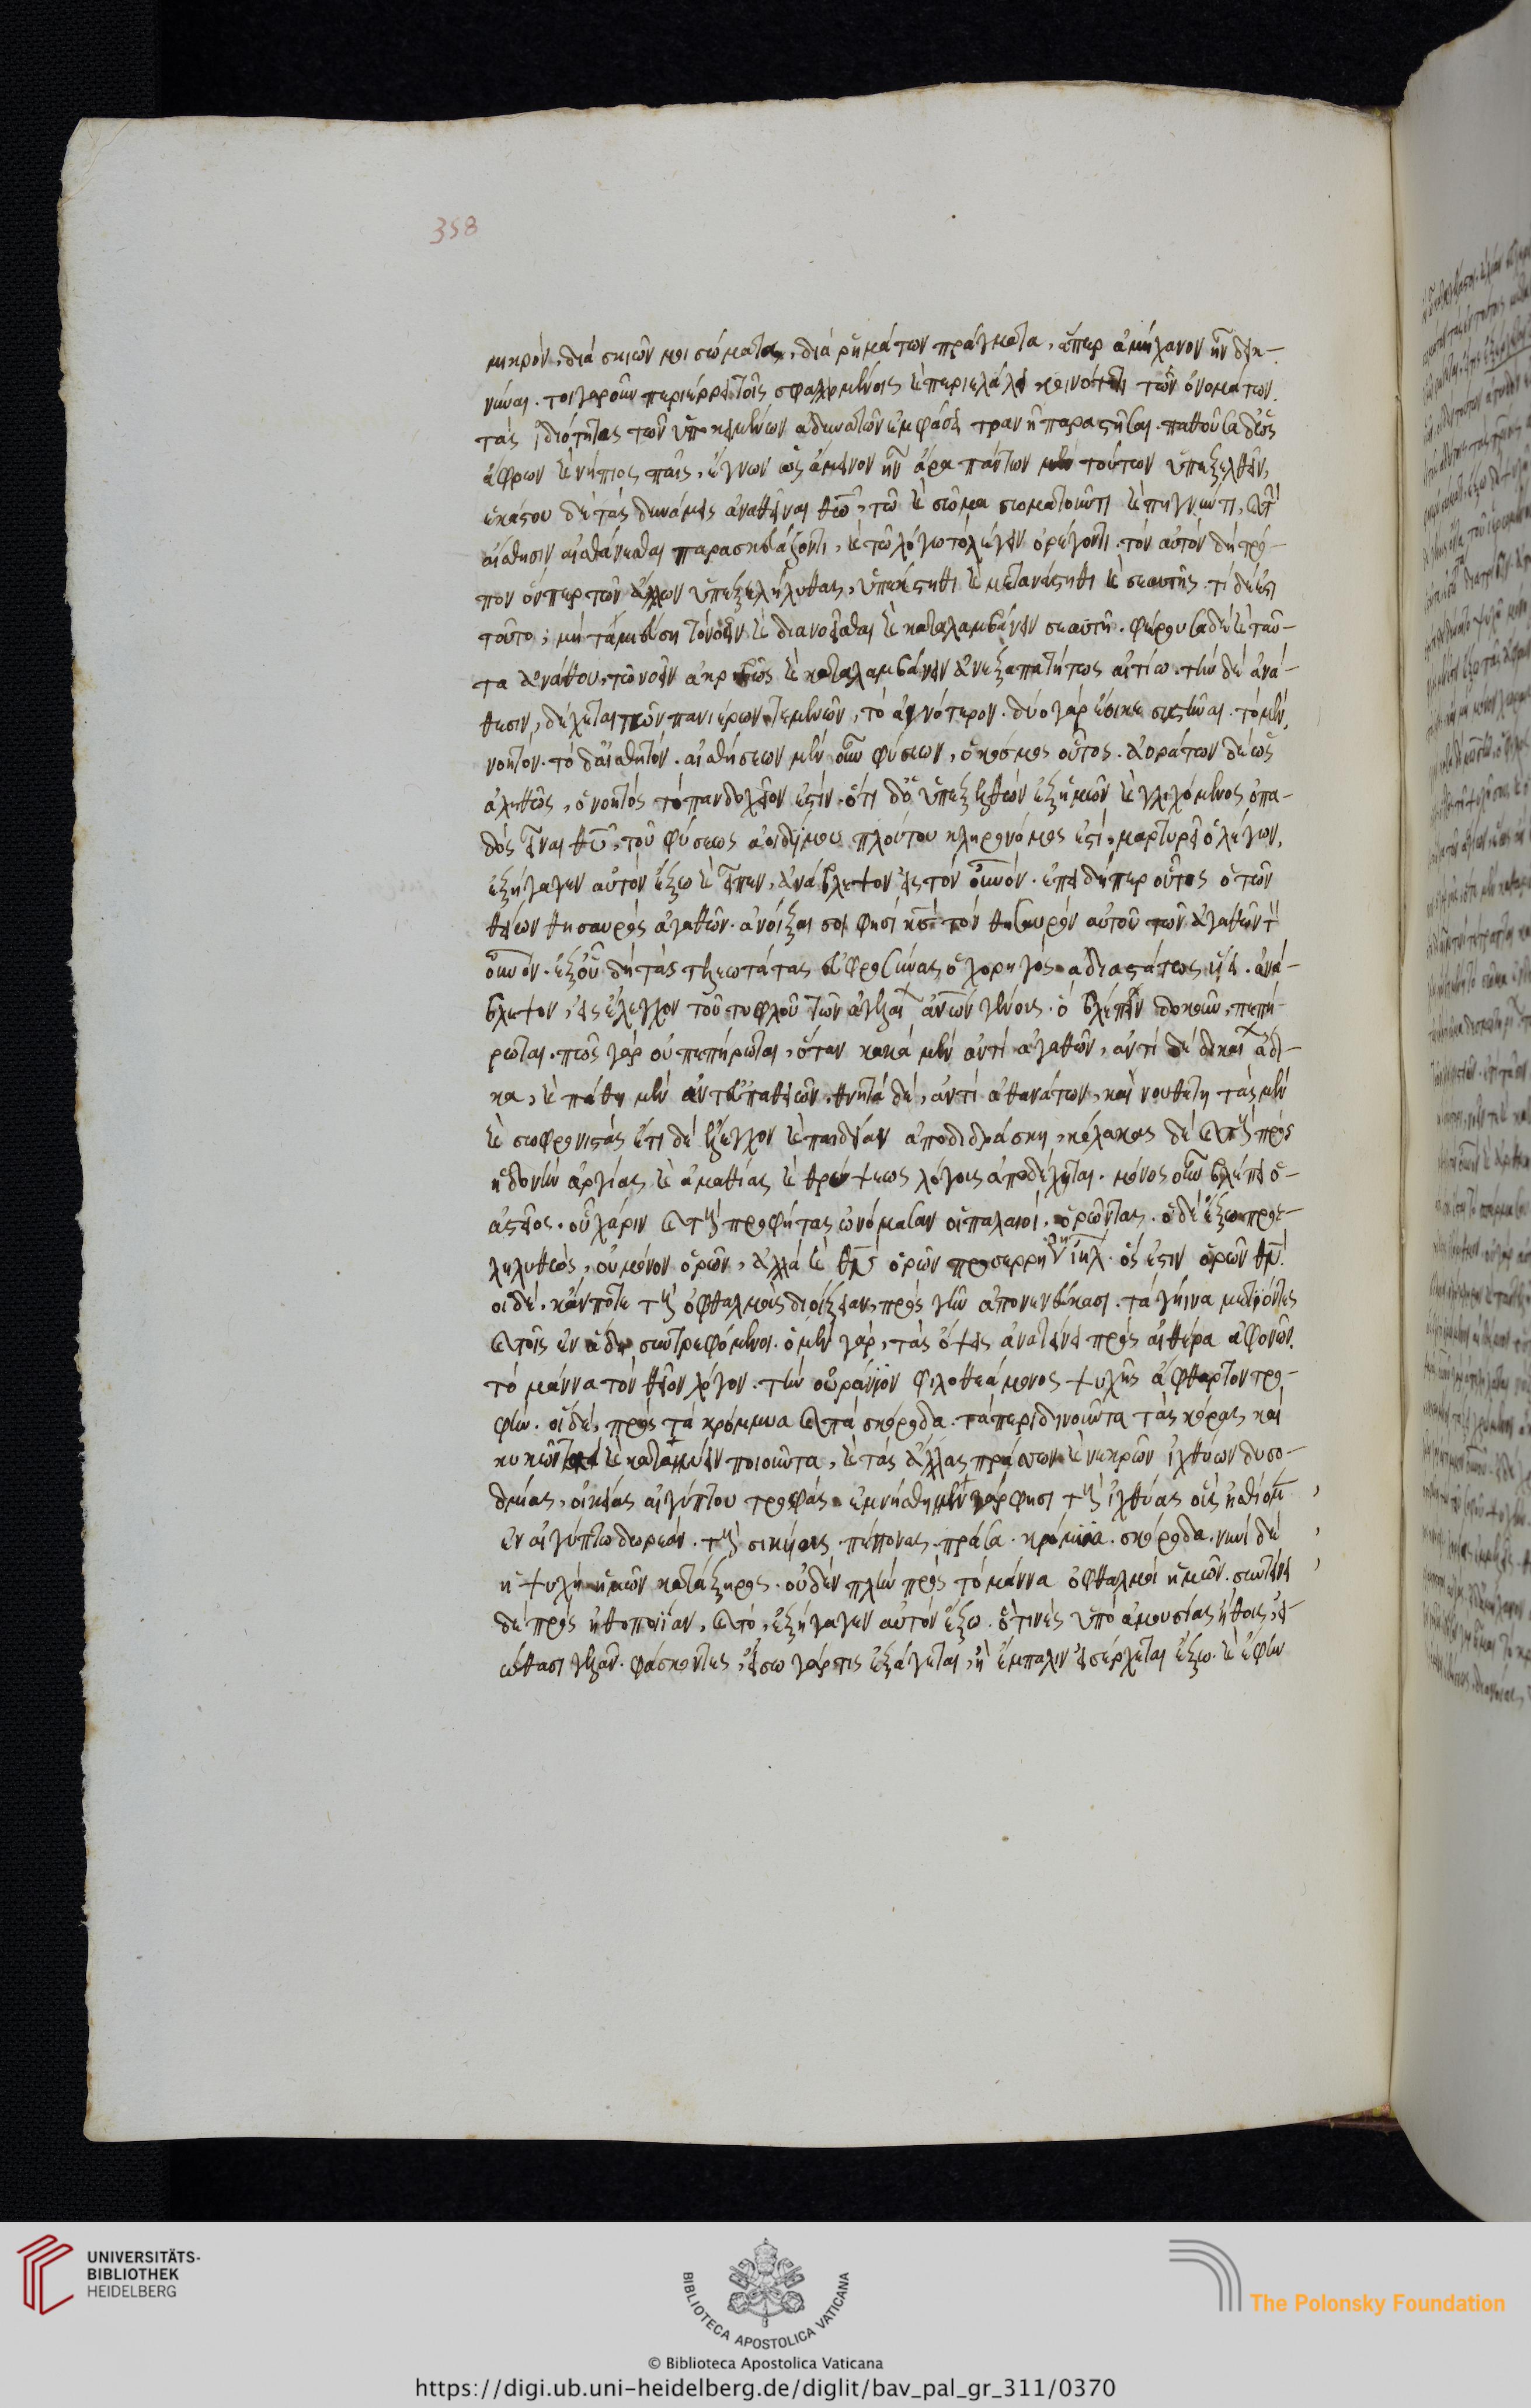 μικρὸν, διὰ σκιῶν μοι σώματα, διὰ ῥημάτων πράγματα, ἅπερ ἀμήχανον ἦν δεικ-
νύναι. τοιγαροῦν περιέρρει τοῖς σφαλλομένοις καὶ περιελάλει κοινότητι τῶν ὀνομάτων.
τὰς ἰδιότητας τῶν ὑποκειμένων ἀδυνατῶν ἐμφάσει τρανῆ παραστῆσαι. παθοῦσα δ' ὡς
ἄφρων καὶ νήπιος παῖς, ἔγνων ὡς ἄμεινον ἦν ἄρα πάντων μὲν τούτων ὑπεξελθεῖν,
ἑκάστου δὲ τὰς δυνάμεις ἀναθεῖναι θεῶ, τῶ καὶ σῶμα σωματοῦντι καὶ πηγνύντι, καὶ τὴν
αἴσθησιν αἰσθάνεσθαι παρασκευάζοντι, καὶ τῶ λόγω τὸ λέγειν ὀρέγοντι. τὸν αὐτὸν δὴ τρό-
πον ὅνπερ τῶν ἄλλων ὑπεξελήλυθας, ὑπέκστηθι καὶ μετανάστηθι καὶ σεαυτῆς. τί δέ ἐστι
τοῦτο; μὴ ταμιεύση τὸ νοεῖν καὶ διανοεῖσθαι καὶ καταλαμβάνειν σεαυτῆ. φέρουσα δὲ καὶ ταῦ-
τα ἀνάθου, τῶ νοεῖν ἀκριβῶς καὶ καταλαμβάνειν ἀνεξαπατήτως αἰτίω. τὴν δὲ ἀνά-
θεσιν, δέχεται τῶν πανιέρων τεμενῶν, τὸ ἁγιότερον. δύο γὰρ ἔοικε συστῆναι. τὸ μὲν,
νοητὸν. τὸ δ' αἰσθητόν. αἰσθήσεων μὲν οὖν φύσεων, ὁ κόσμος οὗτος. ἀοράτων δὲ ὡς
ἀληθῶς, ὁ νοητός τὸ πανδοχεῖον ἐστίν. ὅτι δ' ὁ ὑπεξελθὼν ἐξ ἡμῶν καὶ γλιχόμενος ὀπα-
δὸς εἶναι θεοῦ, τοῦ φύσεως ἀοιδίμου πλούτου κληρονόμος ἐστὶ, μαρτυρεῖ ὁ λέγων,
ἐξήγαγεν αὐτὸν ἔξω καὶ εἶπεν, ἀνάβλεψον εἰς τὸν οὐνον. ἐπειδήπερ οὗτος ὁ τῶν
θείων θησαυρὸς ἀγαθῶν. ἀνοίξαι σοι φησὶ κς τὸν θησαυρὸν αὐτοῦ τῶν ἀγαθῶν τὸν
οὐνον. ἐξ οὗ δὴ τὰς τελεωτάτας εὐφροσύνας ὁ χορηγὸς ἀδιαστάτως ὕει. ἀνά-
βλεψον, εἰς ἔλεγχον τοῦ τυφλοῦ τῶν ἀγελαίων ἀνων γένους. ὁ βλέπειν δοκοῦν, πεπή-
ρωται. πῶς γὰρ οὐ πεπήρωται, ὅταν κακὰ μὲν ἀντὶ ἀγαθῶν, ἀντὶ δὲ δικαίων ἄδι-
κα, καὶ πάθη μὲν ἀντ' εὐπαθειῶν, θνητὰ δὲ, ἀντὶ ἀθανάτων, καὶ νουθέτη τὰς μὲν
καὶ σωφρονιστὰς ἔτι δὲ ἔλεγχον καὶ παιδείαν ἀποδιδράσκη, κόλακας δὲ καὶ τοὺς πρὸς
ἡδονὴν ἀργίας καὶ ἀμαθίας καὶ θρύψεως λόγοις ἀποδέχηται. μόνος οὖν βλέπει ὁ
ἀστεῖος. οὗ χάριν καὶ τοὺς προφήτας ὠνόμασαν οἱ παλαιοί, ὁρῶντας. ὁ δὲ ἔξω προε-
ληλυθὼς, οὐ μόνον ὁρῶν, ἀλλὰ καὶ θν ὁρῶν προσερρήθη ιηλ. ὅς ἐστιν ὁρῶν θν.
οἱ δὲ, κἄν ποτε τοὺς ὀφθαλμοὺς διοίξωσιν, πρὸς γῆν ἀπονενεύκασι. τὰ γήινα μετιόντες
καὶ τοῖς ἐν ἅδου συντρεφόμενοι. ὁ μὲν γὰρ, τὰς ὄψεις ἀνατείνει πρὸς αἰθέρα ἀφορῶν.
τὸ μάννα τὸν θεῖον λόγον. τὴν οὐράνιον φιλοθεάμονος ψυχῆς ἄφθαρτον τρο-
φήν. οἱ δὲ, πρὸς τὰ κρόμμυα καὶ τὰ σκόροδα. τὰ περιδινοῦντα τὰς κόρας καὶ
κυκῶντα καὶ καταμύειν ποιοῦντα, καὶ τὰς ἄλλας πράσων καὶ νεκρῶν ἰχθύων δυσο-
δμίας, οἰκείας αἰγύπτου τροφάς. ἐμνήσθημεν γὰρ φησι τοὺς ἰχθύας οὓς ἠσθίομεν
ἐν αἰγύπτω δωρεάν. τοὺς σικύους πέπονας. πράσα. κρόμυα. σκόροδα. νυνὶ δὲ
ἡ ψυχὴ ἡμῶν κατάξηρος. οὐδὲν πλὴν πρὸς τὸ μάννα ὀφθαλμοὶ ἡμῶν. συντείνει
δὲ πρὸς ἠθοποιίαν, καὶ τό, ἐξήγαγεν αὐτὸν ἔξω. ὅ τινὲς ὑπὸ ἀμουσίας ἤθους, εἰ-
ώθασι γελᾶν. φάσκοντες, εἴσω γάρ τις ἐξάγεται, ἢ ἔμπαλιν εἰσέρχεται ἔξω. καὶ ἔφην
358
UNIVERSITÄTS-
BIBLIOTHEK
HEIDELBERG
BIBLIOTECA APOSTOLICA VATICANA
The Polonsky Foundation
© Biblioteca Apostolica Vaticana
https://digi.ub.uni-heidelberg.de/diglit/bav_pal_gr_311/0370